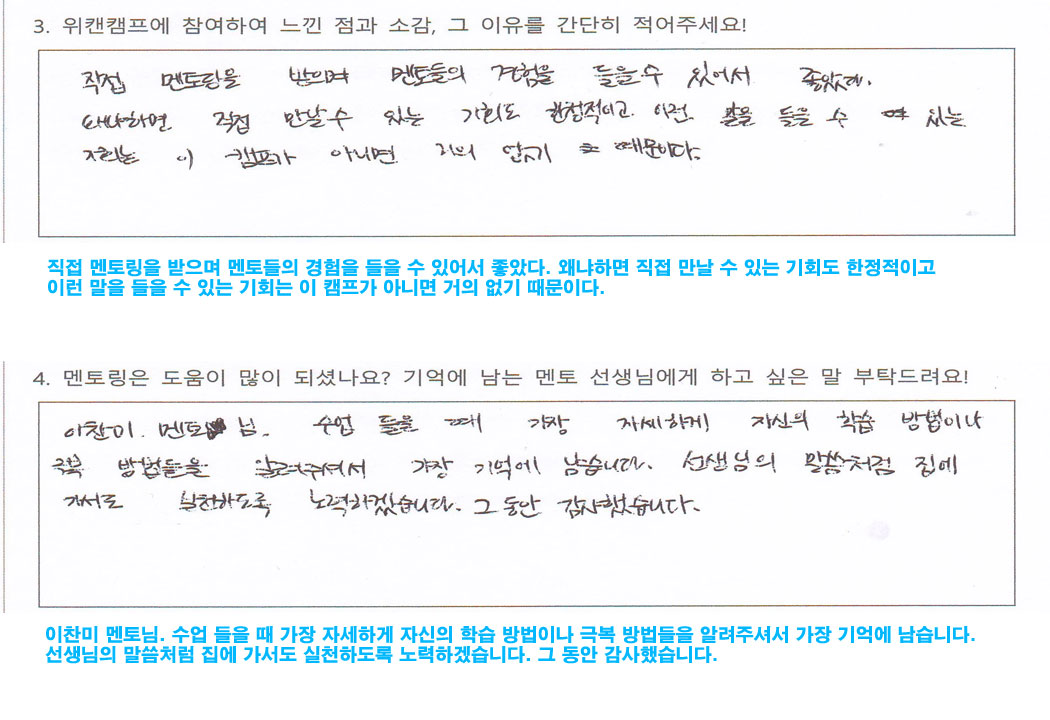 3. 위캔캠프에 참여하여 느낀 점과 소감, 그 이유를 간단히 적어주세요!
직접 멘토링을 받으며 멘토들의 경험을 들을 수 있어서 좋았다.
왜냐하면 직접 만날 수 있는 기회도 한정적이고 이런 말을 들을 수 있는
기회는 이 캠프가 아니면 거의 없기 때문이다.
직접 멘토링을 받으며 멘토들의 경험을 들을 수 있어서 좋았다. 왜냐하면 직접 만날 수 있는 기회도 한정적이고
이런 말을 들을 수 있는 기회는 이 캠프가 아니면 거의 없기 때문이다.
4. 멘토링은 도움이 많이 되셨나요? 기억에 남는 멘토 선생님에게 하고 싶은 말 부탁드려요!
이찬미. 멘토님. 수업 들을 때 가장 자세하게 자신의 학습 방법이나
극복 방법들을 알려주셔서 가장 기억에 남습니다. 선생님의 말씀처럼 집에
가서도 실천하도록 노력하겠습니다. 그 동안 감사했습니다.
이찬미 멘토님. 수업 들을 때 가장 자세하게 자신의 학습 방법이나 극복 방법들을 알려주셔서 가장 기억에 남습니다.
선생님의 말씀처럼 집에 가서도 실천하도록 노력하겠습니다. 그 동안 감사했습니다.